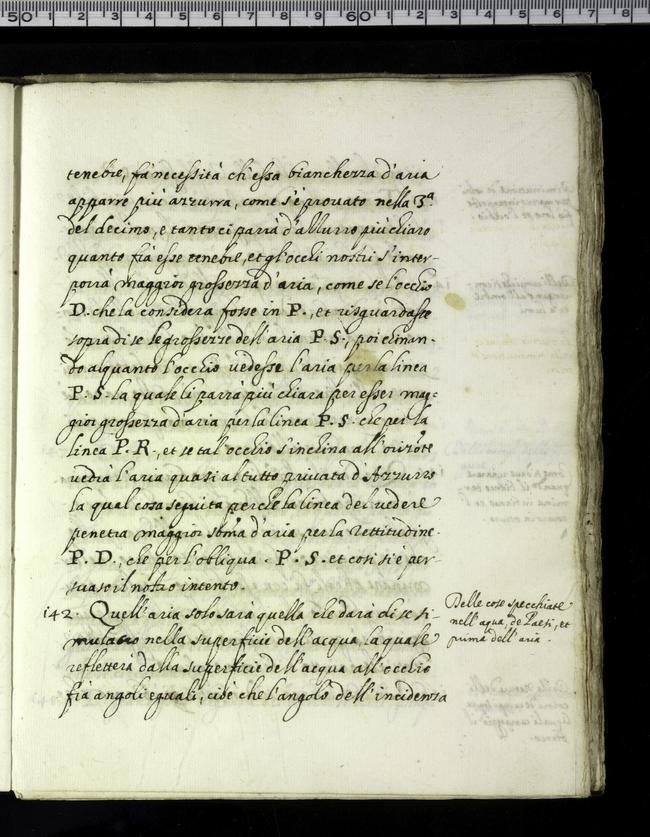 tenebre, fà necessità ch'essa bianchezza d'aria
apparre più azzurra, come s'è provato nella 3.ª
del decimo, e tanto ci parrà d'azzurro più chiaro
quanto frà esse tenebre, et gl'occhi nostri s'inter-
porrà maggior grossezza d'aria, come se l'occhio
D. che la considera fosse in P., et risguardasse
sopra di se le grossezze dell'aria P. S., poi clinan-
do alquanto l'occhio vedesse l'aria per la linea
P. S. la quale li parrà più chiara per esser mag-
gior grossezza d'aria per la linea P. S. che per la
linea P. R., et se tal'occhio s'inclina all'orizōte
vedrà l'aria quasi al tutto privata d'Azzurro
la qual cosa seguita perche la linea del vedere
penetra maggior sōma d'aria per la rettitudine
P. D., che per l'obliqua. P. S. et così si è per-
suaso il nostro intento.
142. Quell'aria solo sara quella che darà di se si-
mulacro nella superficie dell'acqua la quale
refletterà dalla superficie dell'acqua all'occhio
frà angoli eguali, cioè che l'angolo dell'incidenza
Delle cose specchiate
nell'aqua, de Paesi, et
prima dell'aria.
50 1 2 3 4 5 6 7 8 9 60 1 2 3 4 5 6 7 8